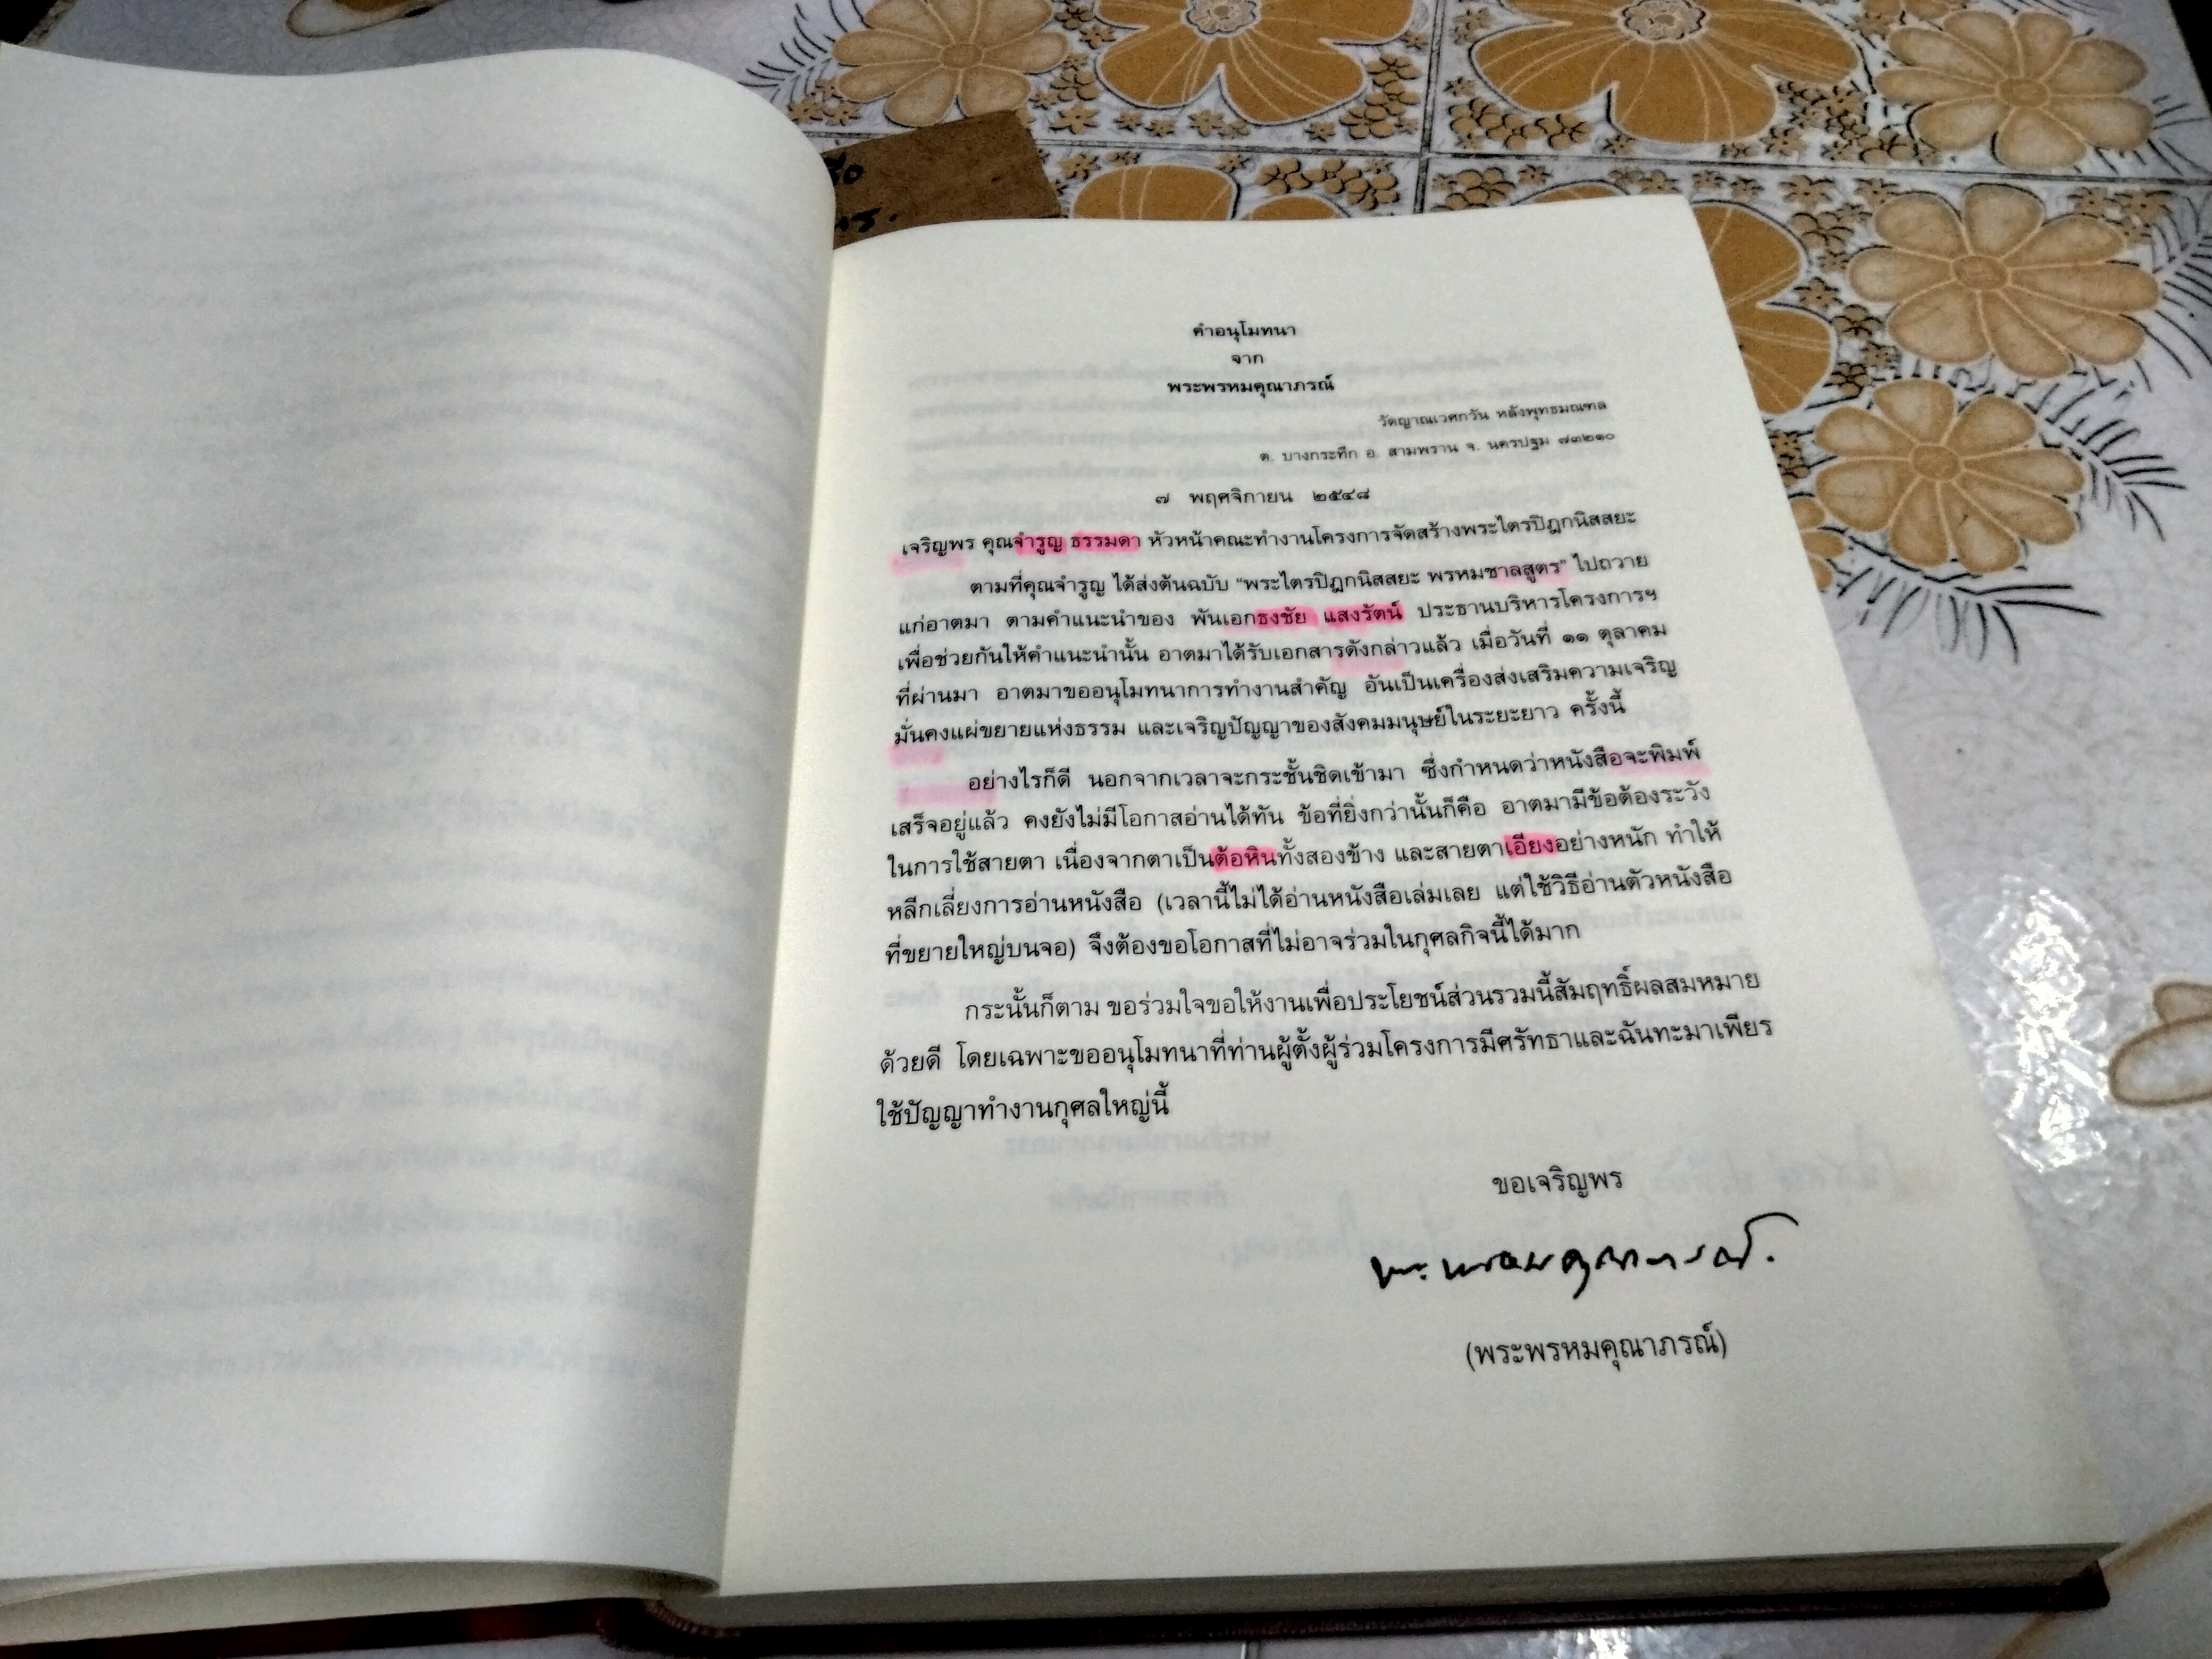 คำอนุโมทนา
จาก
พระพรหมคุณาภรณ์
วัดญาณเวศกวัน หลังพุทธมณฑล
ต. บางกระทึก อ. สามพราน จ. นครปฐม ๗๓๒๑๐
๗ พฤศจิกายน ๒๕๔๘
เจริญพร คุณจำรูญ ธรรมดา หัวหน้าคณะทำงานโครงการจัดสร้างพระไตรปิฎกนิสสยะ
ตามที่คุณจำรูญ ได้ส่งต้นฉบับ "พระไตรปิฎกนิสสยะ พรหมชาลสูตร" ไปถวาย
แก่อาตมา ตามคำแนะนำของ พันเอกธงชัย แสงรัตน์ ประธานบริหารโครงการฯ
เพื่อช่วยกันให้คำแนะนำนั้น อาตมาได้รับเอกสารดังกล่าวแล้ว เมื่อวันที่ ๑๑ ตุลาคม
ที่ผ่านมา อาตมาขออนุโมทนาการทำงานสำคัญ อันเป็นเครื่องส่งเสริมความเจริญ
มั่นคงแผ่ขยายแห่งธรรม และเจริญปัญญาของสังคมมนุษย์ในระยะยาว ครั้งนี้
อย่างไรก็ดี นอกจากเวลาจะกระชั้นชิดเข้ามา ซึ่งกำหนดว่าหนังสือจะพิมพ์
เสร็จอยู่แล้ว คงยังไม่มีโอกาสอ่านได้ทัน ข้อที่ยิ่งกว่านั้นก็คือ อาตมามีข้อต้องระวัง
ในการใช้สายตา เนื่องจากตาเป็นต้อหินทั้งสองข้าง และสายตาเอียงอย่างหนัก ทำให้
หลีกเลี่ยงการอ่านหนังสือ (เวลานี้ไม่ได้อ่านหนังสือเล่มเลย แต่ใช้วิธีอ่านตัวหนังสือ
ที่ขยายใหญ่บนจอ) จึงต้องขอโอกาสที่ไม่อาจร่วมในกุศลกิจนี้ได้มาก
กระนั้นก็ตาม ขอร่วมใจขอให้งานเพื่อประโยชน์ส่วนรวมนี้สัมฤทธิ์ผลสมหมาย
ด้วยดี โดยเฉพาะขออนุโมทนาที่ท่านผู้ตั้งผู้ร่วมโครงการมีศรัทธาและฉันทะมาเพียร
ใช้ปัญญาทำงานกุศลใหญ่นี้
ขอเจริญพร
พระพรหมคุณาภรณ์.
(พระพรหมคุณาภรณ์)